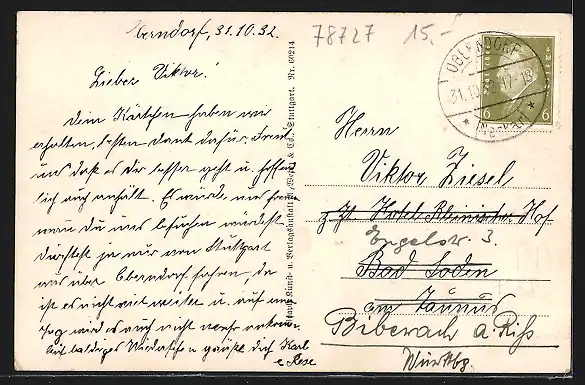 Oberndorf, 31.10.32.
Lieber Viktor!
Dein Kärtchen haben wir
erhalten, besten Dank dafür. Freut
uns daß es dir besser geht u. hoffent
lich auch anhält. Es würde uns freuen
wenn du uns besuchen würdest
dürftest ja nur von Stuttgart
aus über Oberndorf fahren, da
ist es nicht viel weiter u. auf
Zug wird es auch nicht mehr ankommen.
Auf baldiges Wiedersehen grüßt dich Karl
e Rese
Kunst- u. Verlagsanstalt & Co., Stuttgart. Nr. 60214
78727
15,-
OBERNDORF
31.10. 17-18
(Neckar)
6 6
Herrn
Viktor Ziesel
z. Zt. Hotel Hof
Engelstr. 3.
Bad Soden
am Taunus
Biberach a. Riß
Württbg.